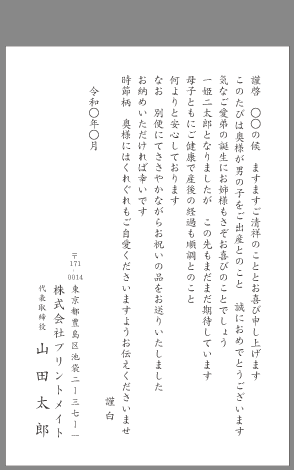 謹啓　〇〇の候　ますますご清祥のこととお喜び申し上げます
このたびは奥様が男の子をご出産とのこと　誠におめでとうございます
気なご愛弟の誕生にお姉様もさぞお喜びのことでしょう
一姫二太郎となりましたが　この先もまだまだ期待しています
母子ともにご健康で産後の経過も順調とのこと
何よりと安心しております
なお　別便にてささやかながらお祝いの品をお送りいたしました
お納めいただければ幸いです
時節柄　奥様にはくれぐれもご自愛くださいますようお伝えくださいませ
謹白
令和〇年〇月
〒171-0014
東京都豊島区池袋二ー三七ー一
株式会社プリントメイト
代表取締役　山田太郎